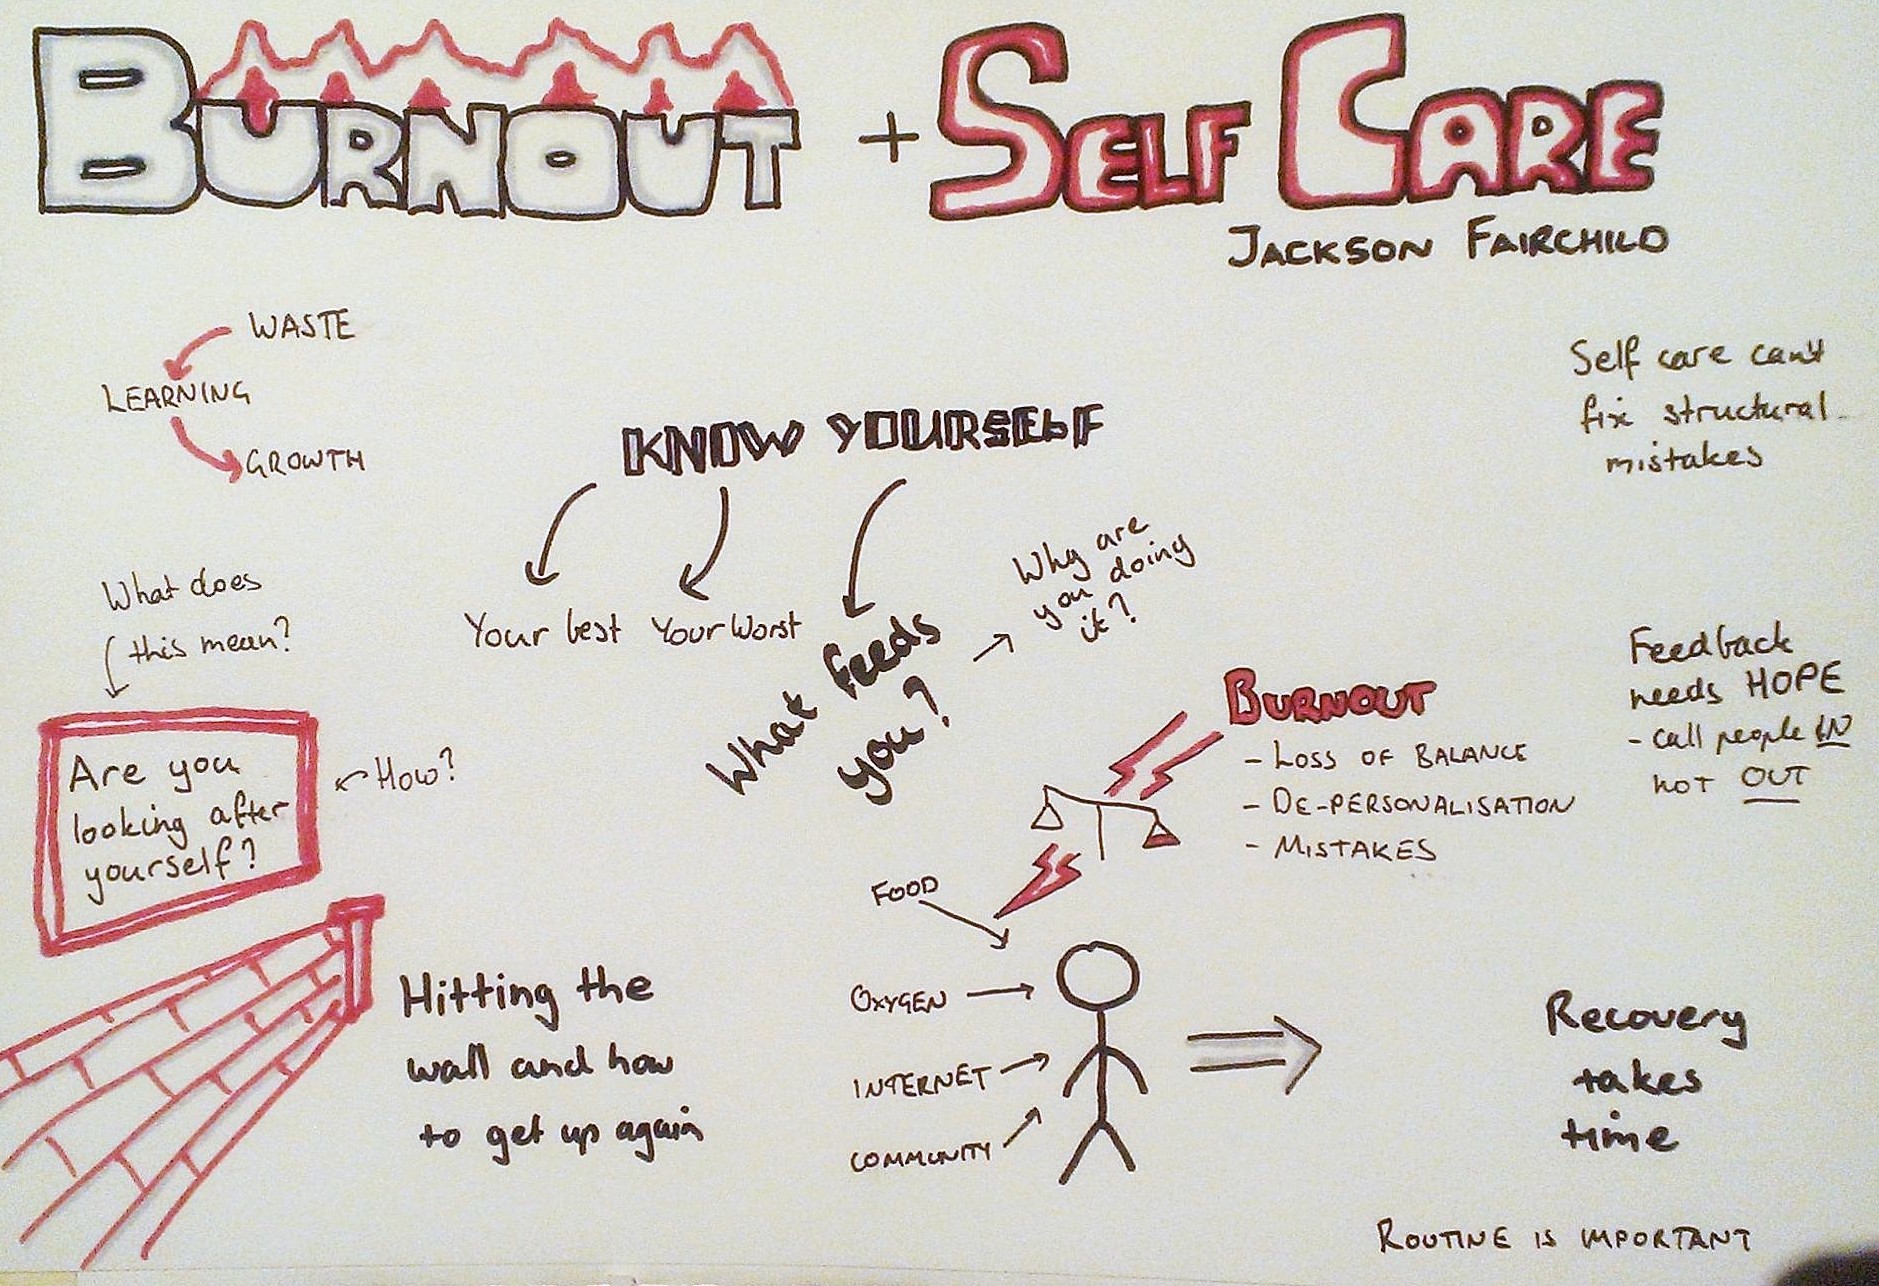 BURNOUT + SELF CARE
JACKSON FAIRCHILD
WASTE
LEARNING
GROWTH
KNOW YOURSELF
Your best
Your Worst
What feeds
you?
Why are
you doing
it?
Self care can't
fix structural
mistakes
What does
this mean?
Are you
looking after
yourself?
How?
BURNOUT
- LOSS OF BALANCE
- DE-PERSONALISATION
- MISTAKES
Feedback
needs HOPE
- call people IN
not OUT
Hitting the
wall and how
to get up again
FOOD
OXYGEN
INTERNET
COMMUNITY
Recovery
takes
time
ROUTINE IS IMPORTANT